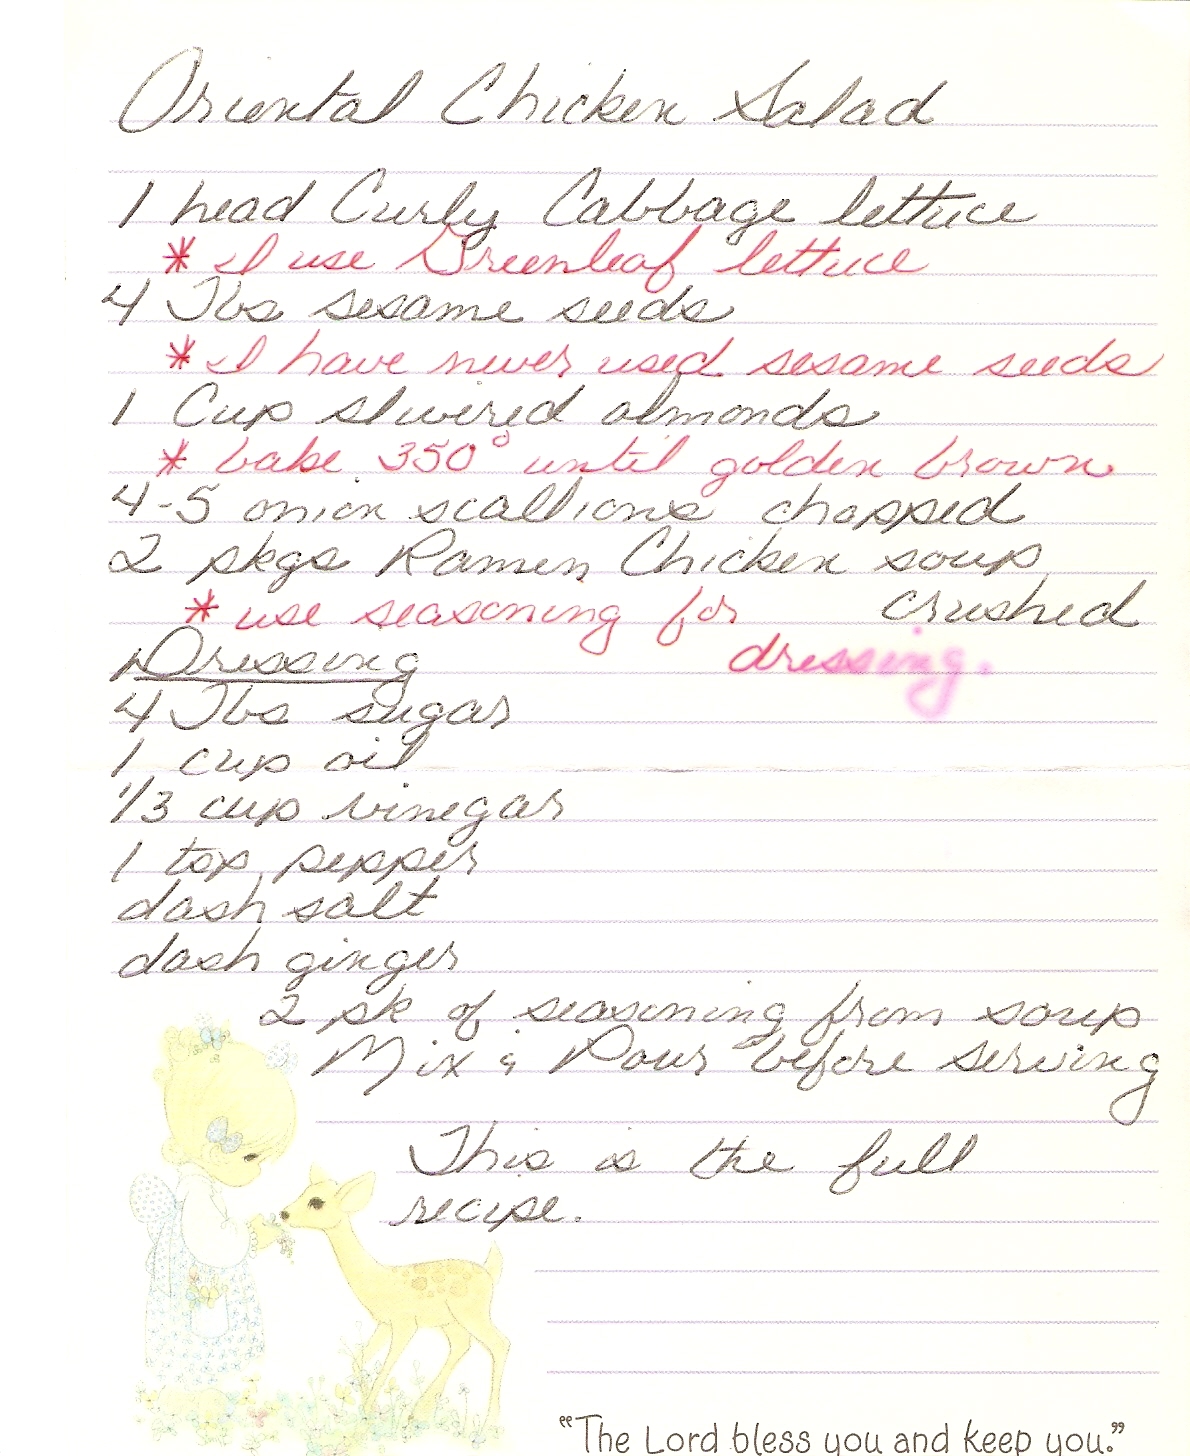 Oriental Chicken Salad
1 head Curly Cabbage lettuce
* I use Greenleaf lettuce
4 Tbs sesame seeds
* I have never used sesame seeds
1 Cup slivered almonds
* bake 350° until golden brown
4-5 onion scallions chopped
2 pkgs Ramen Chicken soup
crushed
* use seasoning for
dressing.
Dressing
4 Tbs sugar
1 cup oil
1/3 cup vinegar
1 tsp pepper
dash salt
dash ginger
2 pk of seasoning from soup
Mix & Pour before serving
This is the full
recipe.
"The Lord bless you and keep you."